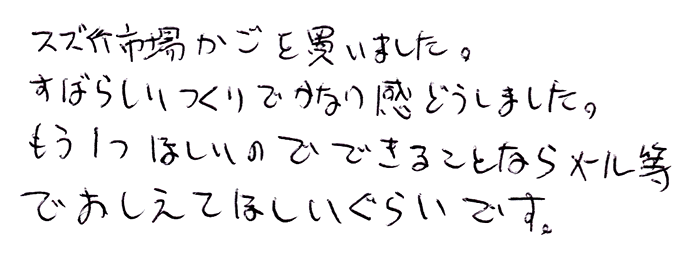 スズ竹市場かごを買いました。
すばらしいつくりでかなり感どうしました。
もう1つほしいのでできることならメール等
でおしえてほしいぐらいです。